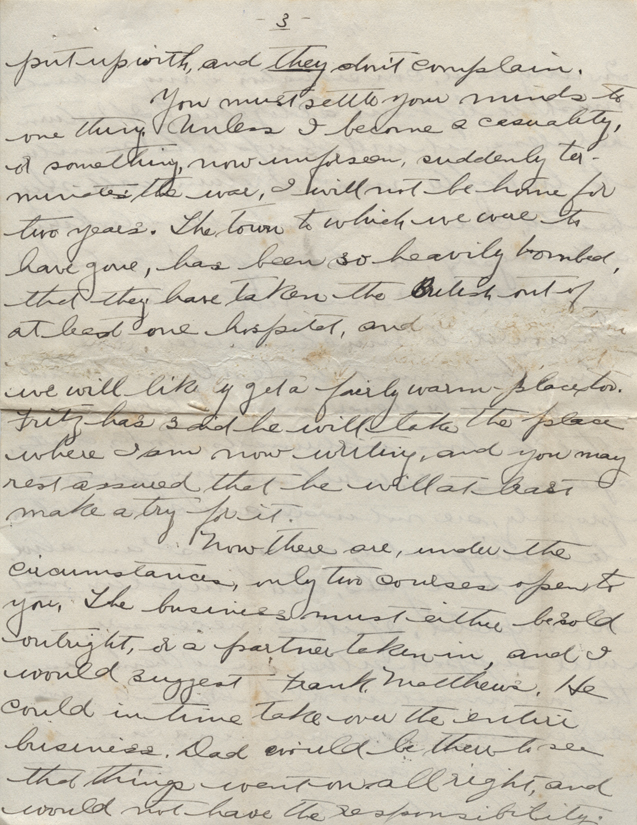 3
put up with, and they don't complain.
You must settle your minds to
one thing. Unless I become a casuality,
or something, now unforseen, suddenly ter-
minates the war, I will not be home for
two years. The town to which we were to
have gone, has been so heavily bombed,
that they have taken the British out of
at least one hospital, and
we will likely get a fairly warm place, too.
Fritz has said he will take the place
where I am now writing, and you may
rest assured that he will at least
make a try for it.
Now there are, under the
circumstances, only two courses open to
you, The business must either be sold
outright, or a partner taken in, and I
would suggest Frank Matthews. He
could in time take over the entire
business. Dad would be there to see
that things went on all right, and
would not have the responsibility.